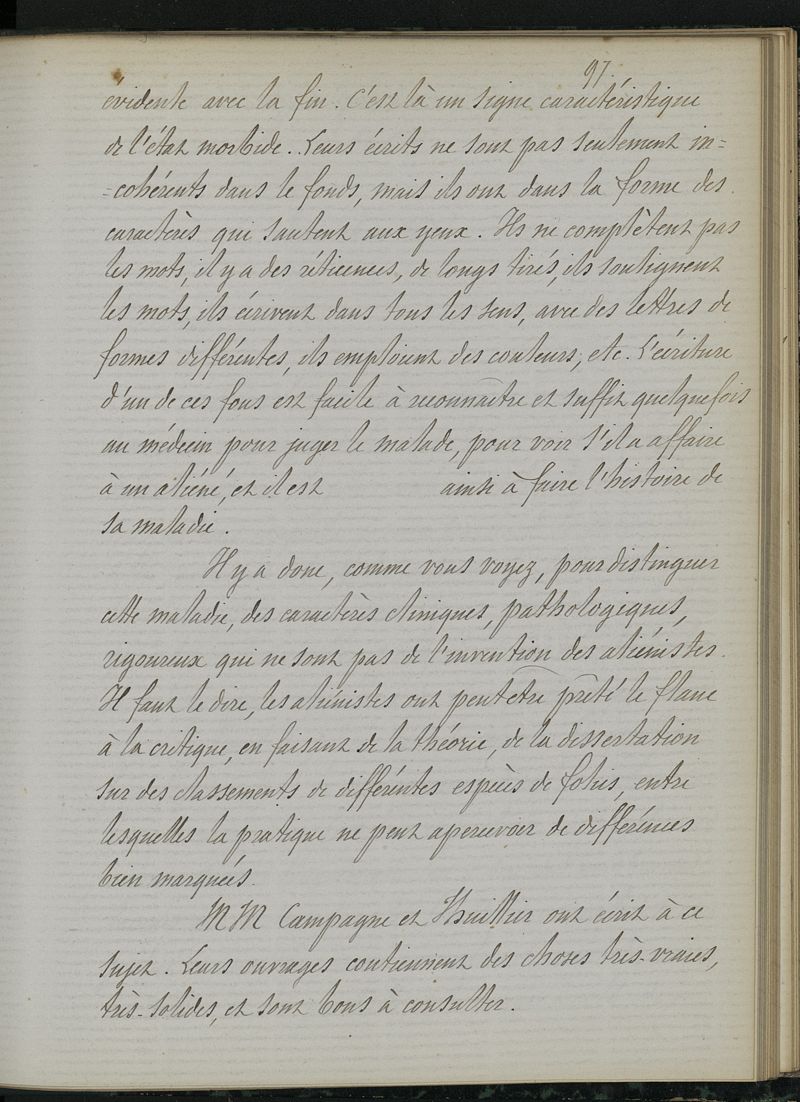 97.
évidente avec la fin. C'est là un signe caractéristique
de l'état morbide. Leurs écrits ne sont pas seulement in=
=cohérents dans le fonds, mais ils ont dans la forme des
caractères qui sautent aux yeux. Ils ne complètent pas
les mots, il y a des réticences, de longs tirés, ils soulignent
les mots, ils écrivent dans tous les sens, avec des lettres de
formes différentes, ils emploient des couleurs, etc. L'écriture
d'un de ces fous est facile à reconnaître et suffit quelquefois
au médecin pour juger le malade, pour voir s'il a affaire
à un aliéné, et il est ainsi à faire l'histoire de
sa maladie.
Il y a donc, comme vous voyez, pour distinguer
cette maladie, des caractères cliniques, pathologiques,
rigoureux qui ne sont pas de l'invention des aliénistes.
Il faut le dire, les aliénistes ont peut être prêté le flanc
à la critique, en faisant de la théorie, de la dissertation
sur des classements de différentes espèces de folies, entre
lesquelles la pratique ne peut apercevoir de différences
bien marquées.
MM Campagne et Thuillier ont écrit à ce
sujet. Leurs ouvrages contiennent des choses très-vraies,
très-solides, et sont bons à consulter.